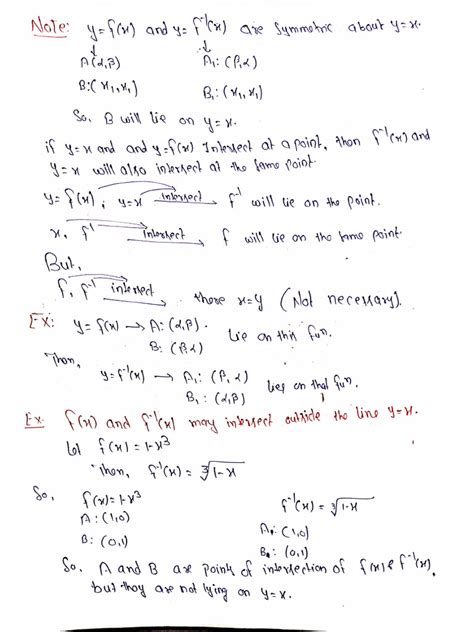 Note: y=f(x) and y=f⁻¹(x) are symmetric about y=x.
↓ ↓
A(α,β) A₁:(β,α)
B:(x₁,x₁) B₁:(x₁,x₁)
So, B will lie on y=x.
if y=x and and y=f(x) Intersect at a point, then f⁻¹(x) and
y=x will also intersect at the same point
y=f(x), y=x intersect → f⁻¹ will lie on the point.
x, f⁻¹ intersect → f will lie on the same point
But,
f, f⁻¹ intersect → there x=y (Not necessary).
Ex: y=f(x) → A:(α,β). Lie on this fun.
B:(β,α)
Then,
y=f⁻¹(x) → A₁:(β,α) lies on that fun.
B₁:(α,β)
Ex: f(x) and f⁻¹(x) may intersect outside the line y=x.
Let f(x)=1-x³
Then, f⁻¹(x)=∛1-x
So, f(x)=1-x³ f⁻¹(x)=∛1-x
A:(1,0) A₁:(1,0)
B:(0,1) B₁:(0,1)
So, A and B are points of intersection of f(x) & f⁻¹(x),
but they are not lying on y=x.